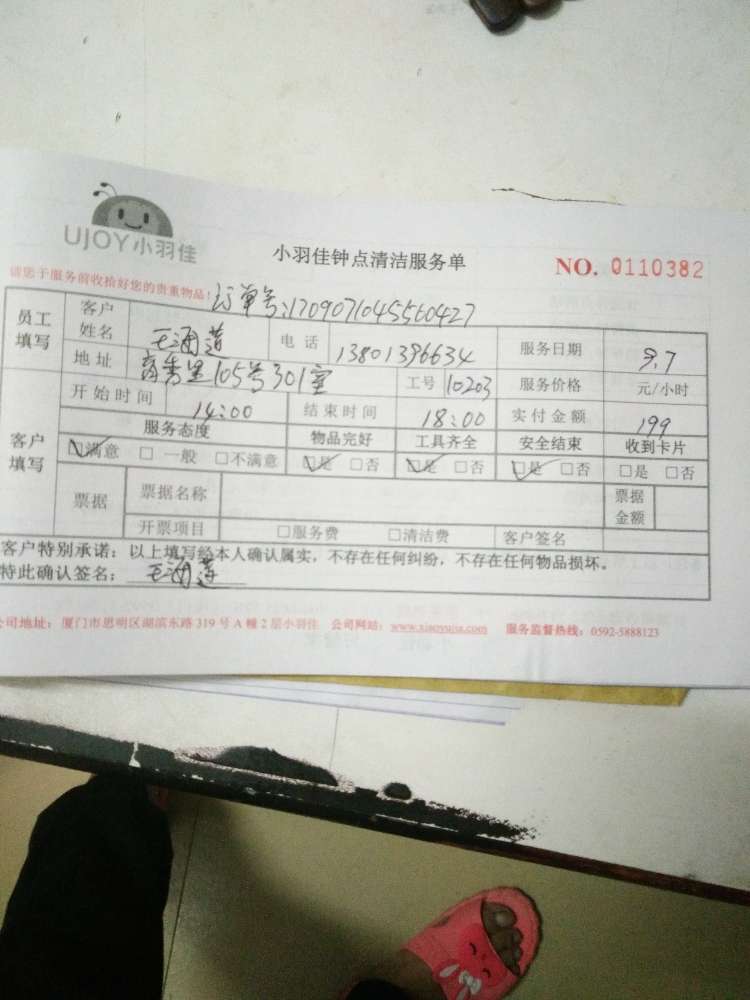 UJOY小羽佳
小羽佳钟点清洁服务单
NO. 0110382
请您于服务前收拾好您的贵重物品!
订单号:1709071045560427
员工填写 客户姓名 王海莲 电话 13801396634 服务日期 9.7
地址 秀里105号301室 工号 10203 服务价格 元/小时
客户填写 开始时间 14:00 结束时间 18:00 实付金额 199
服务态度 物品完好 工具齐全 安全结束 收到卡片
☑满意 □一般 □不满意 ☑是 □否 ☑是 □否 ☑是 □否 □是 □否
票据 票据名称 票据金额
开票项目 □服务费 □清洁费 客户签名
客户特别承诺：以上填写经本人确认属实，不存在任何纠纷，不存在任何物品损坏。
特此确认签名：王海莲
公司地址：厦门市思明区湖滨东路319号A幢2层小羽佳 公司网站：www.xiaoyujia.com 服务监督热线：0592-5888123